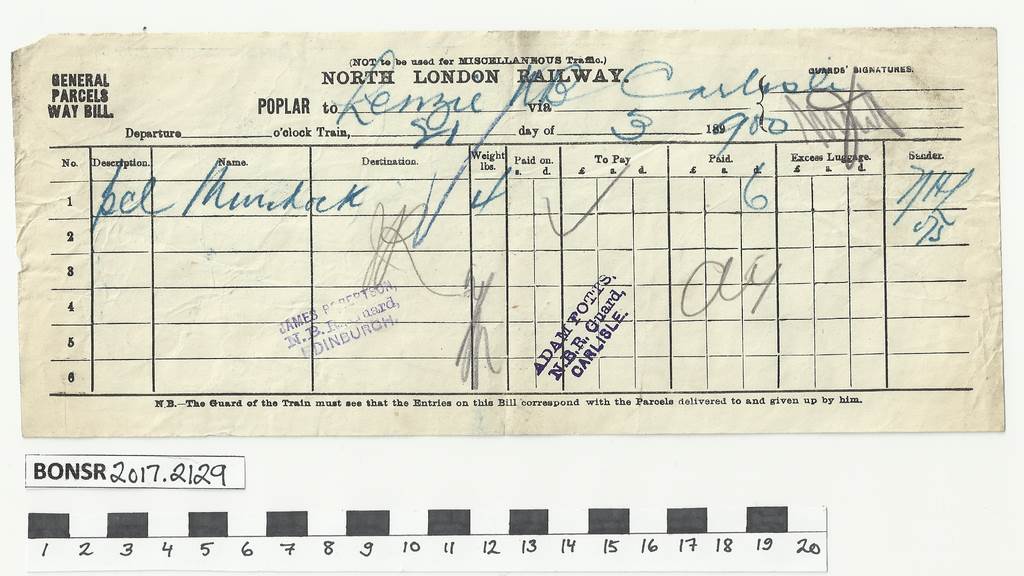 (NOT to be used for MISCELLANEOUS Traffic.)
NORTH LONDON RAILWAY.
GENERAL
PARCELS
WAY BILL.
GUARDS' SIGNATURES.
POPLAR to Lenzie NB via Carlisle
Departure o'clock Train, 21 day of 3 189 900
No. Description. Name. Destination. Weight lbs. Paid on. To Pay Paid. Excess Luggage. Sender.
s. d. £ s. d. £ s. d. £ s. d.
1 pcl Murdock 4 6
2
3
4
5
6
JAMES ROBERTSON,
N.B.R. Guard,
EDINBURGH.
ADAM POTTS,
N.B.R. Guard,
CARLISLE.
N.B.—The Guard of the Train must see that the Entries on this Bill correspond with the Parcels delivered to and given up by him.
BONSR 2017.2129
1 2 3 4 5 6 7 8 9 10 11 12 13 14 15 16 17 18 19 20